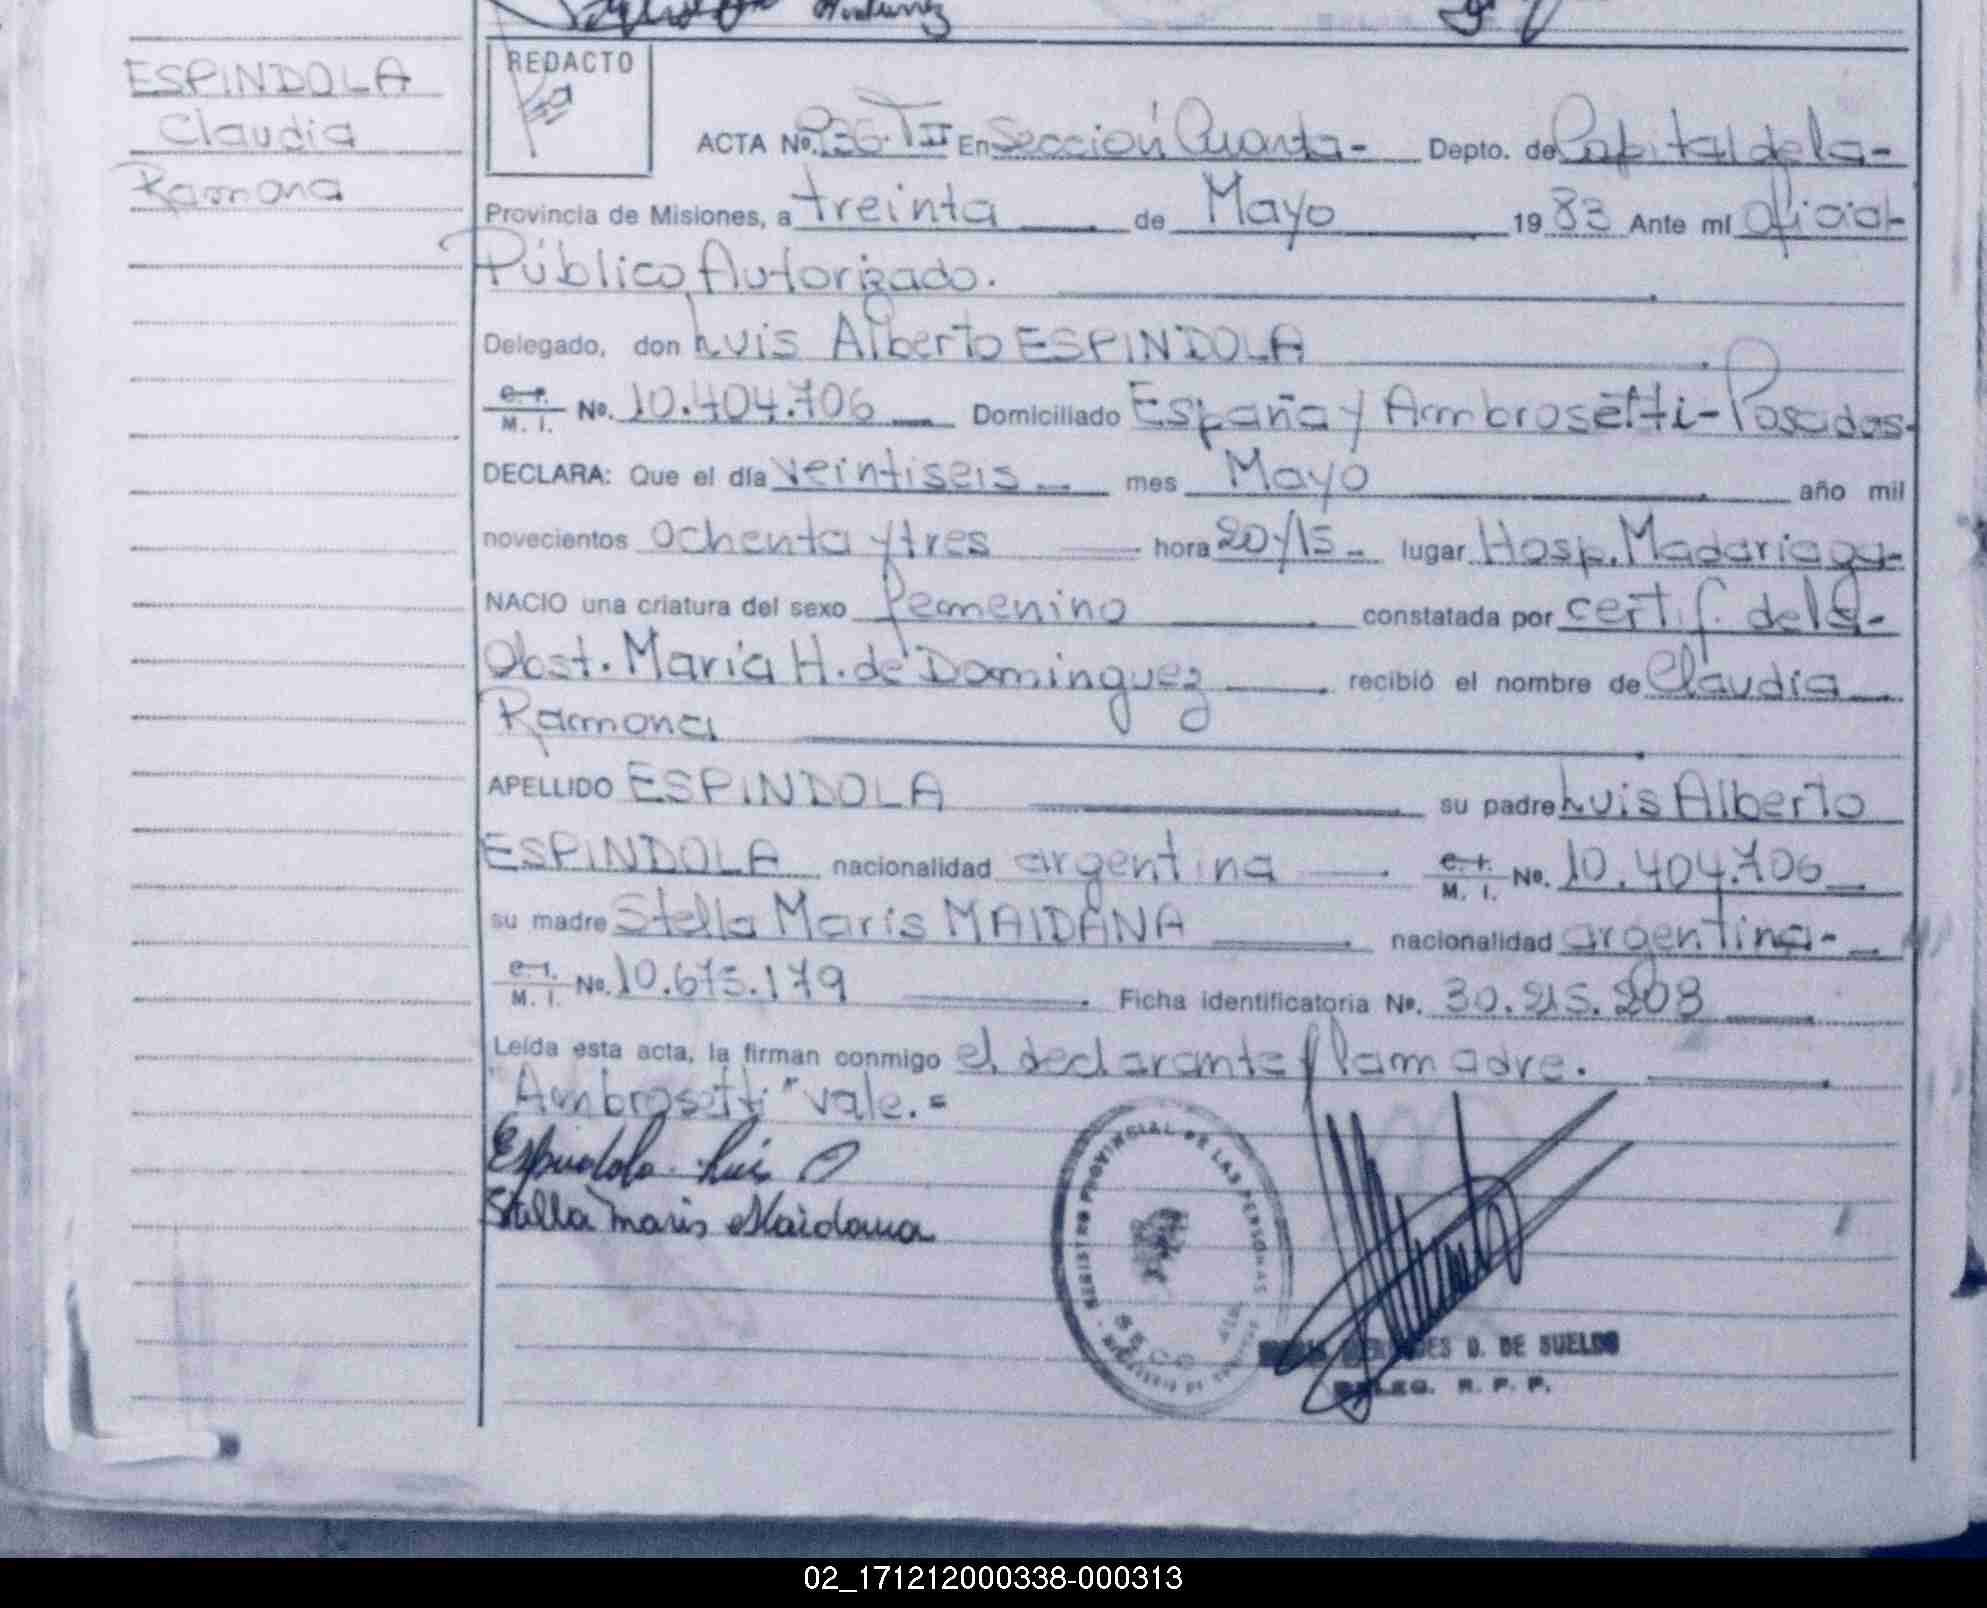 ESPINDOLA
Claudia
Ramona
REDACTO
ACTA Nº. 936-TII En Sección Cuarta- Depto. de Capital de la-
Provincia de Misiones, a treinta de Mayo 1983 Ante mí oficial
Público Autorizado.
Delegado, don Luis Alberto ESPINDOLA
C. I. M. I. Nº. 10.404.706 Domiciliado España y Ambrosetti-Posadas-
DECLARA: Que el día veintiseis mes Mayo año mil
novecientos ochenta y tres hora 20y15 lugar Hosp. Madariaga-
NACIO una criatura del sexo femenino constatada por certif. de la-
Obst. María H. de Dominguez recibió el nombre de Claudia
Ramona
APELLIDO ESPINDOLA su padre Luis Alberto
ESPINDOLA nacionalidad argentina C. I. M. I. Nº. 10.404.706
su madre Stella Maris MAIDANA nacionalidad argentina-
C. I. M. I. Nº. 10.673.179 Ficha identificatoria Nº. 30.215.208
Leída esta acta, la firman conmigo el declarante y la madre.
"Ambrosetti" vale.=
Espindola Luis A
Stella Maris Maidana
REGISTRO PROVINCIAL DE LAS PERSONAS
D. DE SUELDO
DELEG. R. P. P.
02_171212000338-000313